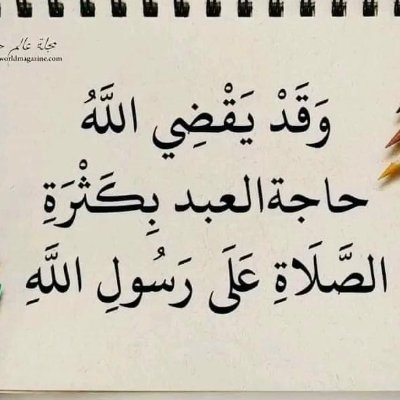 مجلة عالم
worldmagazine.com
وَقَدْ يَقْضِي اللَّهُ
حاجة العبد بِكَثْرَةِ
الصَّلَاةِ عَلَى رَسُولِ اللَّهِ